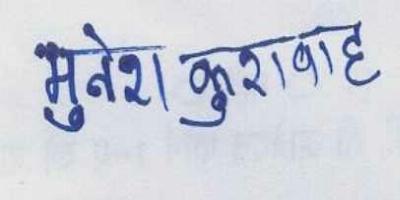 मुनेश कुशवाह